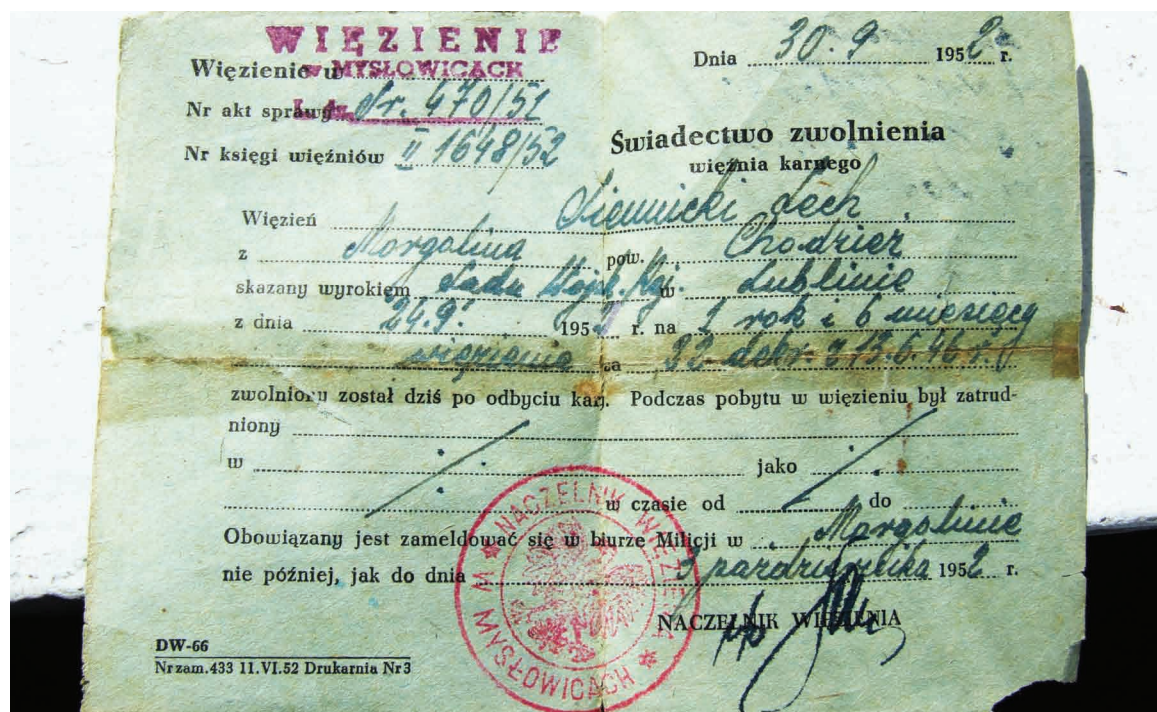 WIĘZIENIE
Więzienie w MYSŁOWICACH
Dnia 30.9 1952 r.
Nr akt sprawy Sr. 470/51
Nr księgi więźniów II 1648/52
Świadectwo zwolnienia
więźnia karnego
Więzień Lech
z Margolina pow. Chodzież
skazany wyrokiem Sądu Wojsk. Rej. w Lublinie
z dnia 24.9. 195 r. na 1 rok i 6 miesięcy
więzienia za 32 dekr. z 13.6.46 r.
zwolniony został dziś po odbyciu kary. Podczas pobytu w więzieniu był zatrud-
niony
w jako
w czasie od do
Obowiązany jest zameldować się w biurze Milicji w Margolinie
nie później, jak do dnia 3 października 1952 r.
NACZELNIK WIĘZIENIA
NACZELNIK WIĘZIENIA * W MYSŁOWICACH *
DW-66
Nr zam. 433 11.VI.52 Drukarnia Nr 3